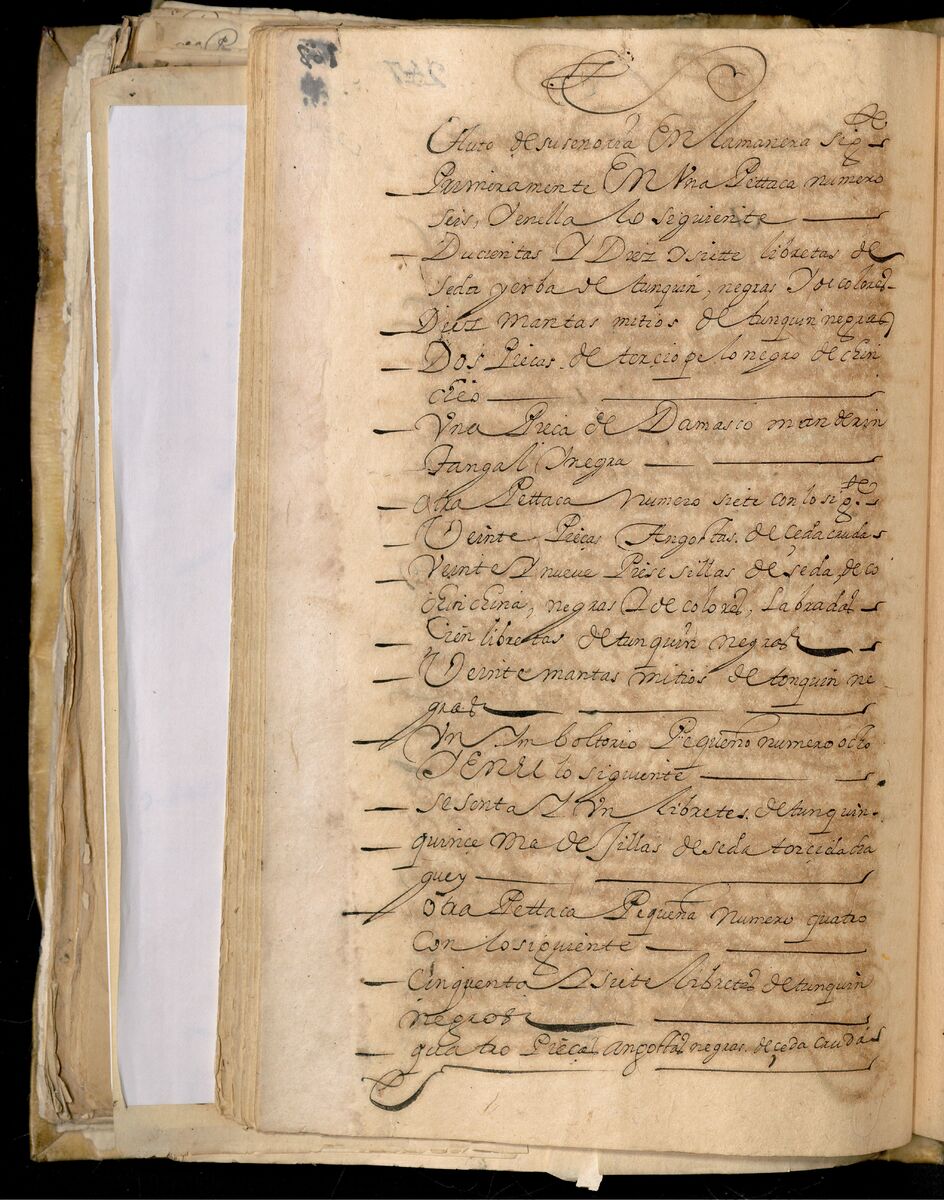 Auto de su senoria En la manera sigte
Primeramente En Una Pettaca numero
seis, Y en ella lo siguiente
Ducientas Y Diez y siette libretas de
seda yerba de tunquin, negras Y de colores
Diez mantas mitios de tunquin negras
Dos Piecas de terciopelo negro de chin
cheo
Una Pieca de Damasco manderin
Y negra
otra Pettaca numero siete con lo sigte
Veinte Piecas Angostas de ceda cruda
Veinte Y nueve Piesesillas de seda, de co
chinchina, negras Y de colores, Labradas
Cien libretas de tunquin negras
Veinte mantas mitios de tonquin ne
gras
Un Imboltorio Pequeño numero ocho
Y En el lo siguiente
sesenta Y Un libretes de tunquin
quince madesillas de seda torcida
otra Pettaca Pequeña numero quatro
Con lo siguiente
Cinquenta Y siete libretes de tunquin
negros
quatro Piecas angostas negras de çeda cruda